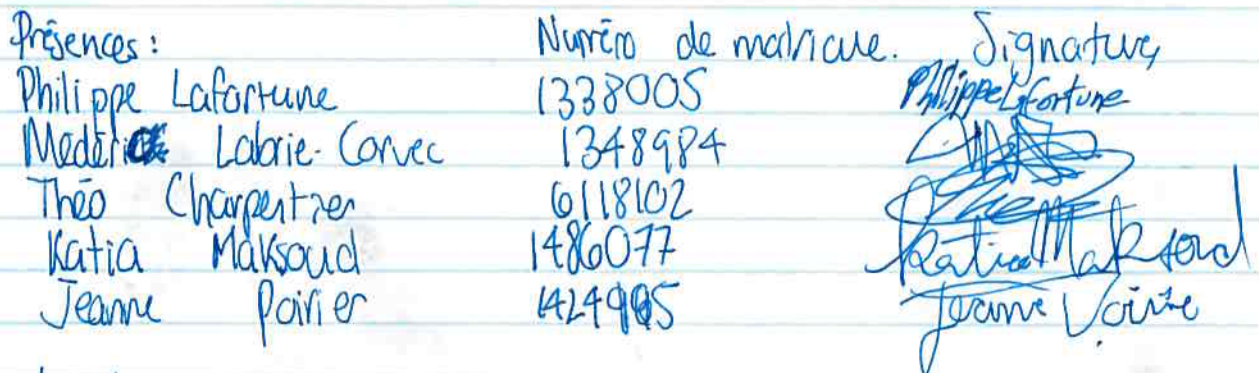 Présences: Numéro de matricule. Signature
Philippe Lafortune 1338005 Philippe Lafortune
Médéric Labrie-Corvec 1348984
Théo Charpentier 6118102
Katia Maksoud 1486077 Katia Maksoud
Jeanne Poirier Jeanne Poirier